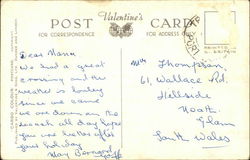 Valentine's
POST CARD
FOR CORRESPONDENCE
FOR ADDRESS ONLY
Dear Nana
We had a great
crossing and the
weather is lovely
since we came
we are down on the
beach all day hope
you are better after
your holiday
May Bernard
Thompson,
61, Wallace Rd.
Hillside
Neath
Glam
South Wales